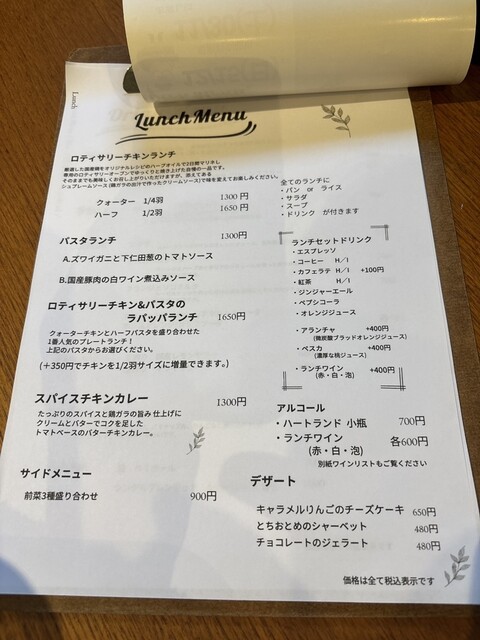 Lunch
Lunch Menu
ロティサリーチキンランチ
厳選した国産鶏をオリジナルレシピのハーブオイルで2日間マリネし
専用のロティサリーオーブンでゆっくりと焼き上げた自慢の一品です。
そのままでも美味しくお召し上がりいただけますが、添えてある
シュプレームソース(鶏ガラの出汁で作ったクリームソース)で味を変えてお楽しみください。
クォーター 1/4羽 1300 円
ハーフ 1/2羽 1650 円
全てのランチに
・パン or ライス
・サラダ
・スープ
・ドリンク が付きます
パスタランチ 1300円
A.ズワイガニと下仁田葱のトマトソース
B.国産豚肉の白ワイン煮込みソース
ロティサリーチキン&パスタの
ラパッパランチ 1650円
クォーターチキンとハーフパスタを盛り合わせた
1番人気のプレートランチ！
上記のパスタからお選びください。
(＋350円でチキンを1/2羽サイズに増量できます。)
スパイスチキンカレー 1300円
たっぷりのスパイスと鶏ガラの旨み 仕上げに
クリームとバターでコクを足した
トマトベースのバターチキンカレー。
サイドメニュー
前菜3種盛り合わせ 900円
ランチセットドリンク
・エスプレッソ
・コーヒー H／I
・カフェラテ H／I +100円
・紅茶 H／I
・ジンジャーエール
・ペプシコーラ
・オレンジジュース
・アランチャ +400円
(微炭酸ブラッドオレンジジュース)
・ペスカ +400円
(濃厚な桃ジュース)
・ランチワイン +400円
(赤・白・泡)
アルコール
・ハートランド 小瓶 700円
・ランチワイン 各600円
(赤・白・泡)
別紙ワインリストもご覧ください
デザート
キャラメルりんごのチーズケーキ 650円
とちおとめのシャーベット 480円
チョコレートのジェラート 480円
価格は全て税込表示です